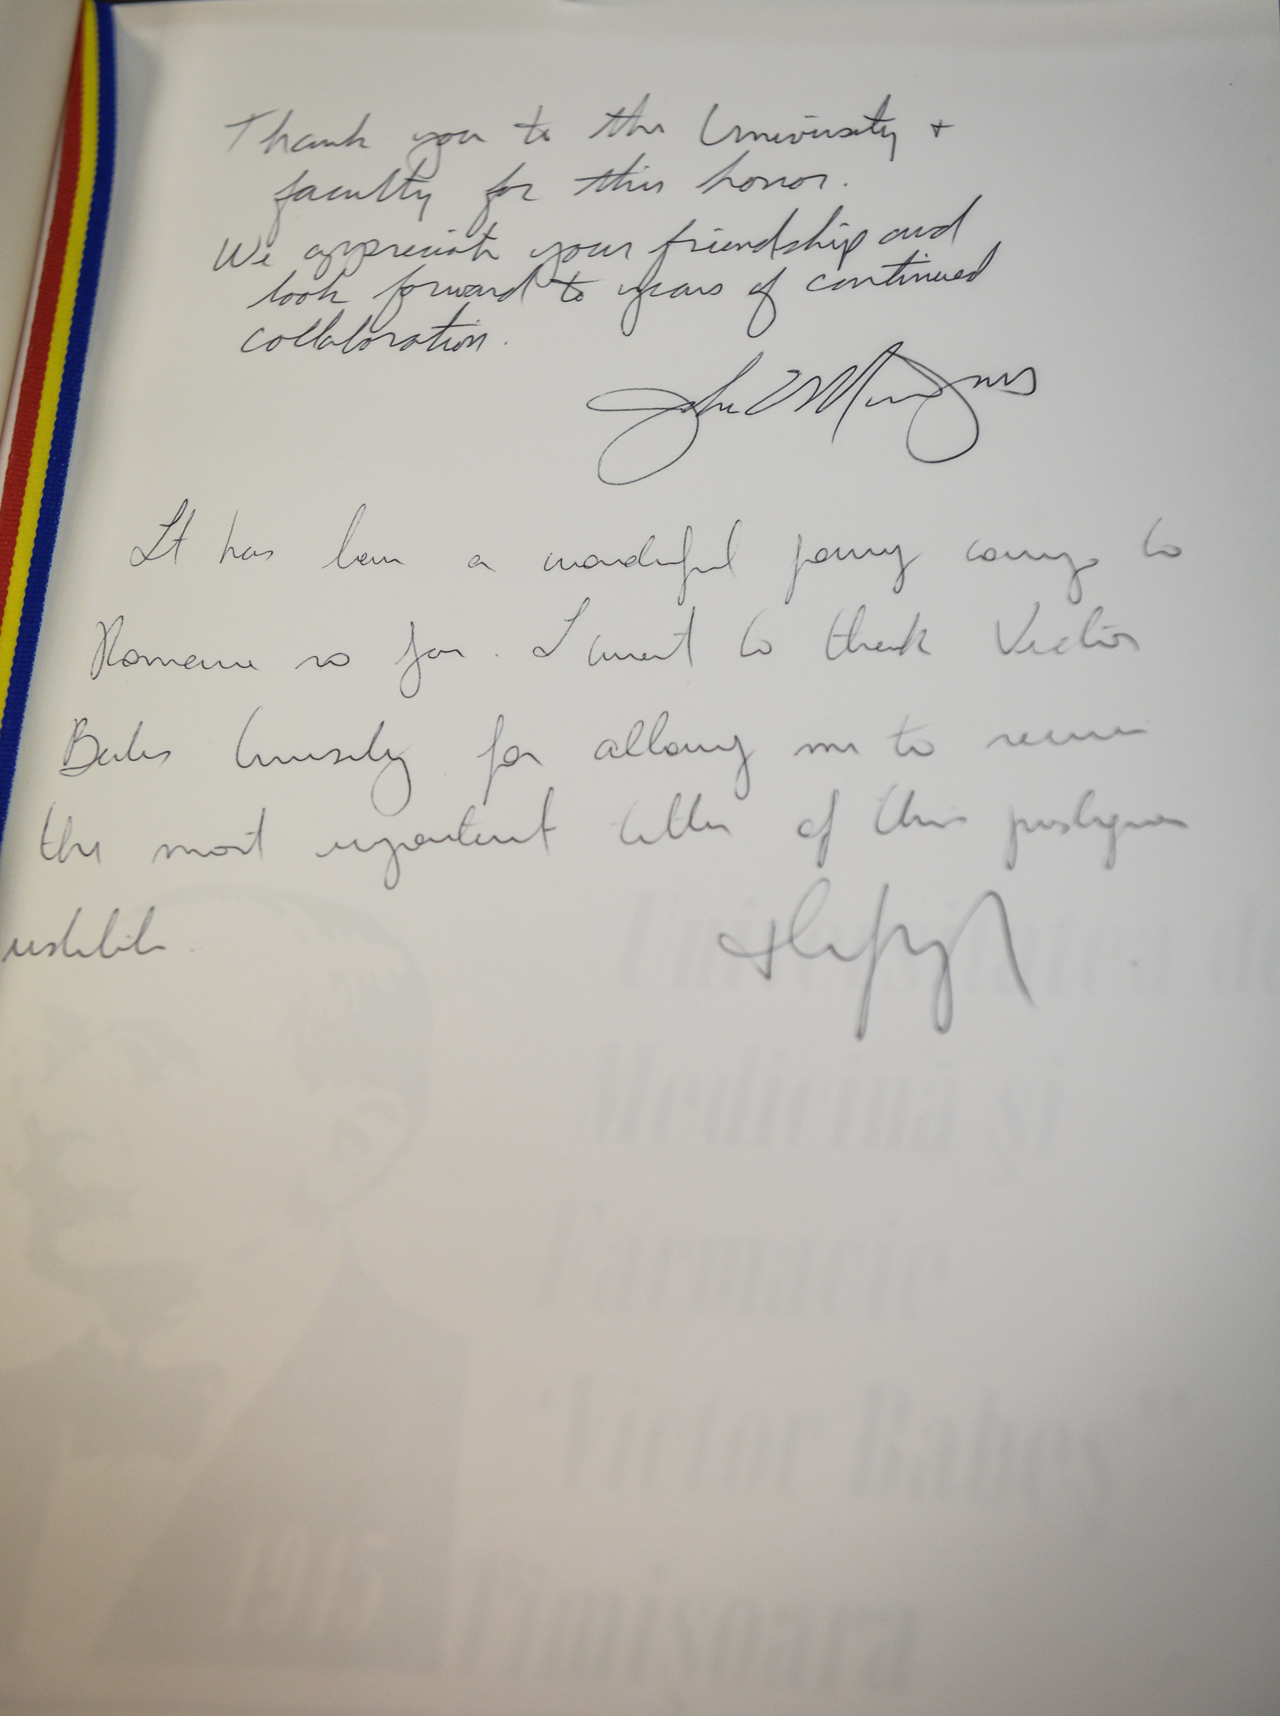 Thank you to the University +
faculty for this honor.
We appreciate your friendship and
look forward to years of continued
collaboration.
It has been a wonderful journey coming to
Romania so far. I want to thank Victor
Babes University for allowing me to receive
the most important title of this prestigious
institute.
Universitatea de
Medicină și
Farmacie
"Victor Babeș"
Timișoara
1945